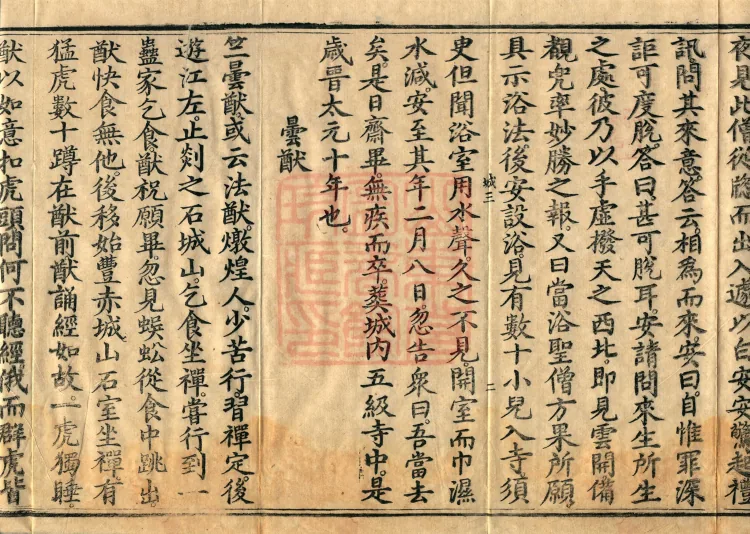 夜見此僧從牕而出入遽以白安安驚起禮
訊問其來意答云相為而來安曰自惟罪深
詎可度脫答曰甚可脫耳安請問來生所生
之處彼乃以手虛撥天之西北即見雲開備
覩兜率妙勝之報又曰當浴聖僧方果所願
具示浴法後安設浴見有數十小兒入寺須
城三
二
史但聞浴室用水聲久之不見開室而巾濕
水減安至其年二月八日忽告衆曰吾當去
矣是日齋畢無疾而卒葬城內五級寺中是
歲晉太元十年也
曇猷
竺曇猷或云法猷燉煌人少苦行習禪定後
遊江左止剡之石城山乞食坐禪嘗行到一
蠱家乞食猷祝願畢忽見蜈蚣從食中跳出
猷快食無他後移始豐赤城山石室坐禪有
猛虎數十蹲在猷前猷誦經如故一虎獨睡
猷以如意扣虎頭問何不聽經俄而群虎皆